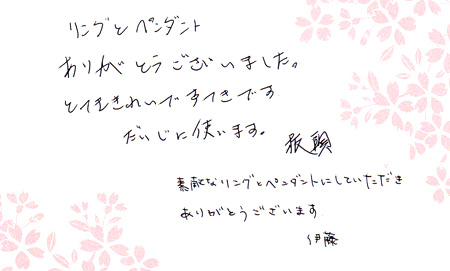 リングと ペンダント
ありがとうございました。
とてもきれいですてきです
だいじに使います。
素敵なリングとペンダントにしていただき
ありがとうございます
伊藤